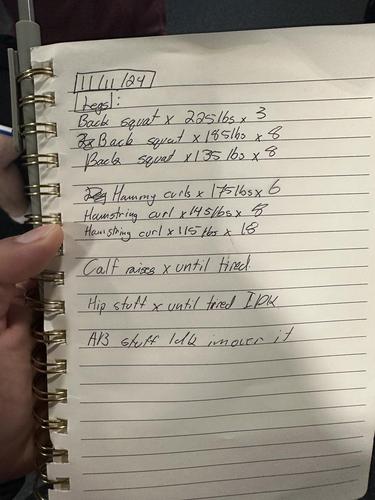 11/11/24
Legs:
Back squat x 225lbs x 3
Back squat x 185lbs x 8
Back squat x 135 lbs x 8
Hammy curls x 175lbs x 6
Hamstring curl x 145lbs x 8
Hamstring curl x 115 lbs x 18
Calf raises x until tired.
Hip stuff x until tired IDK
AB stuff Idk imover it